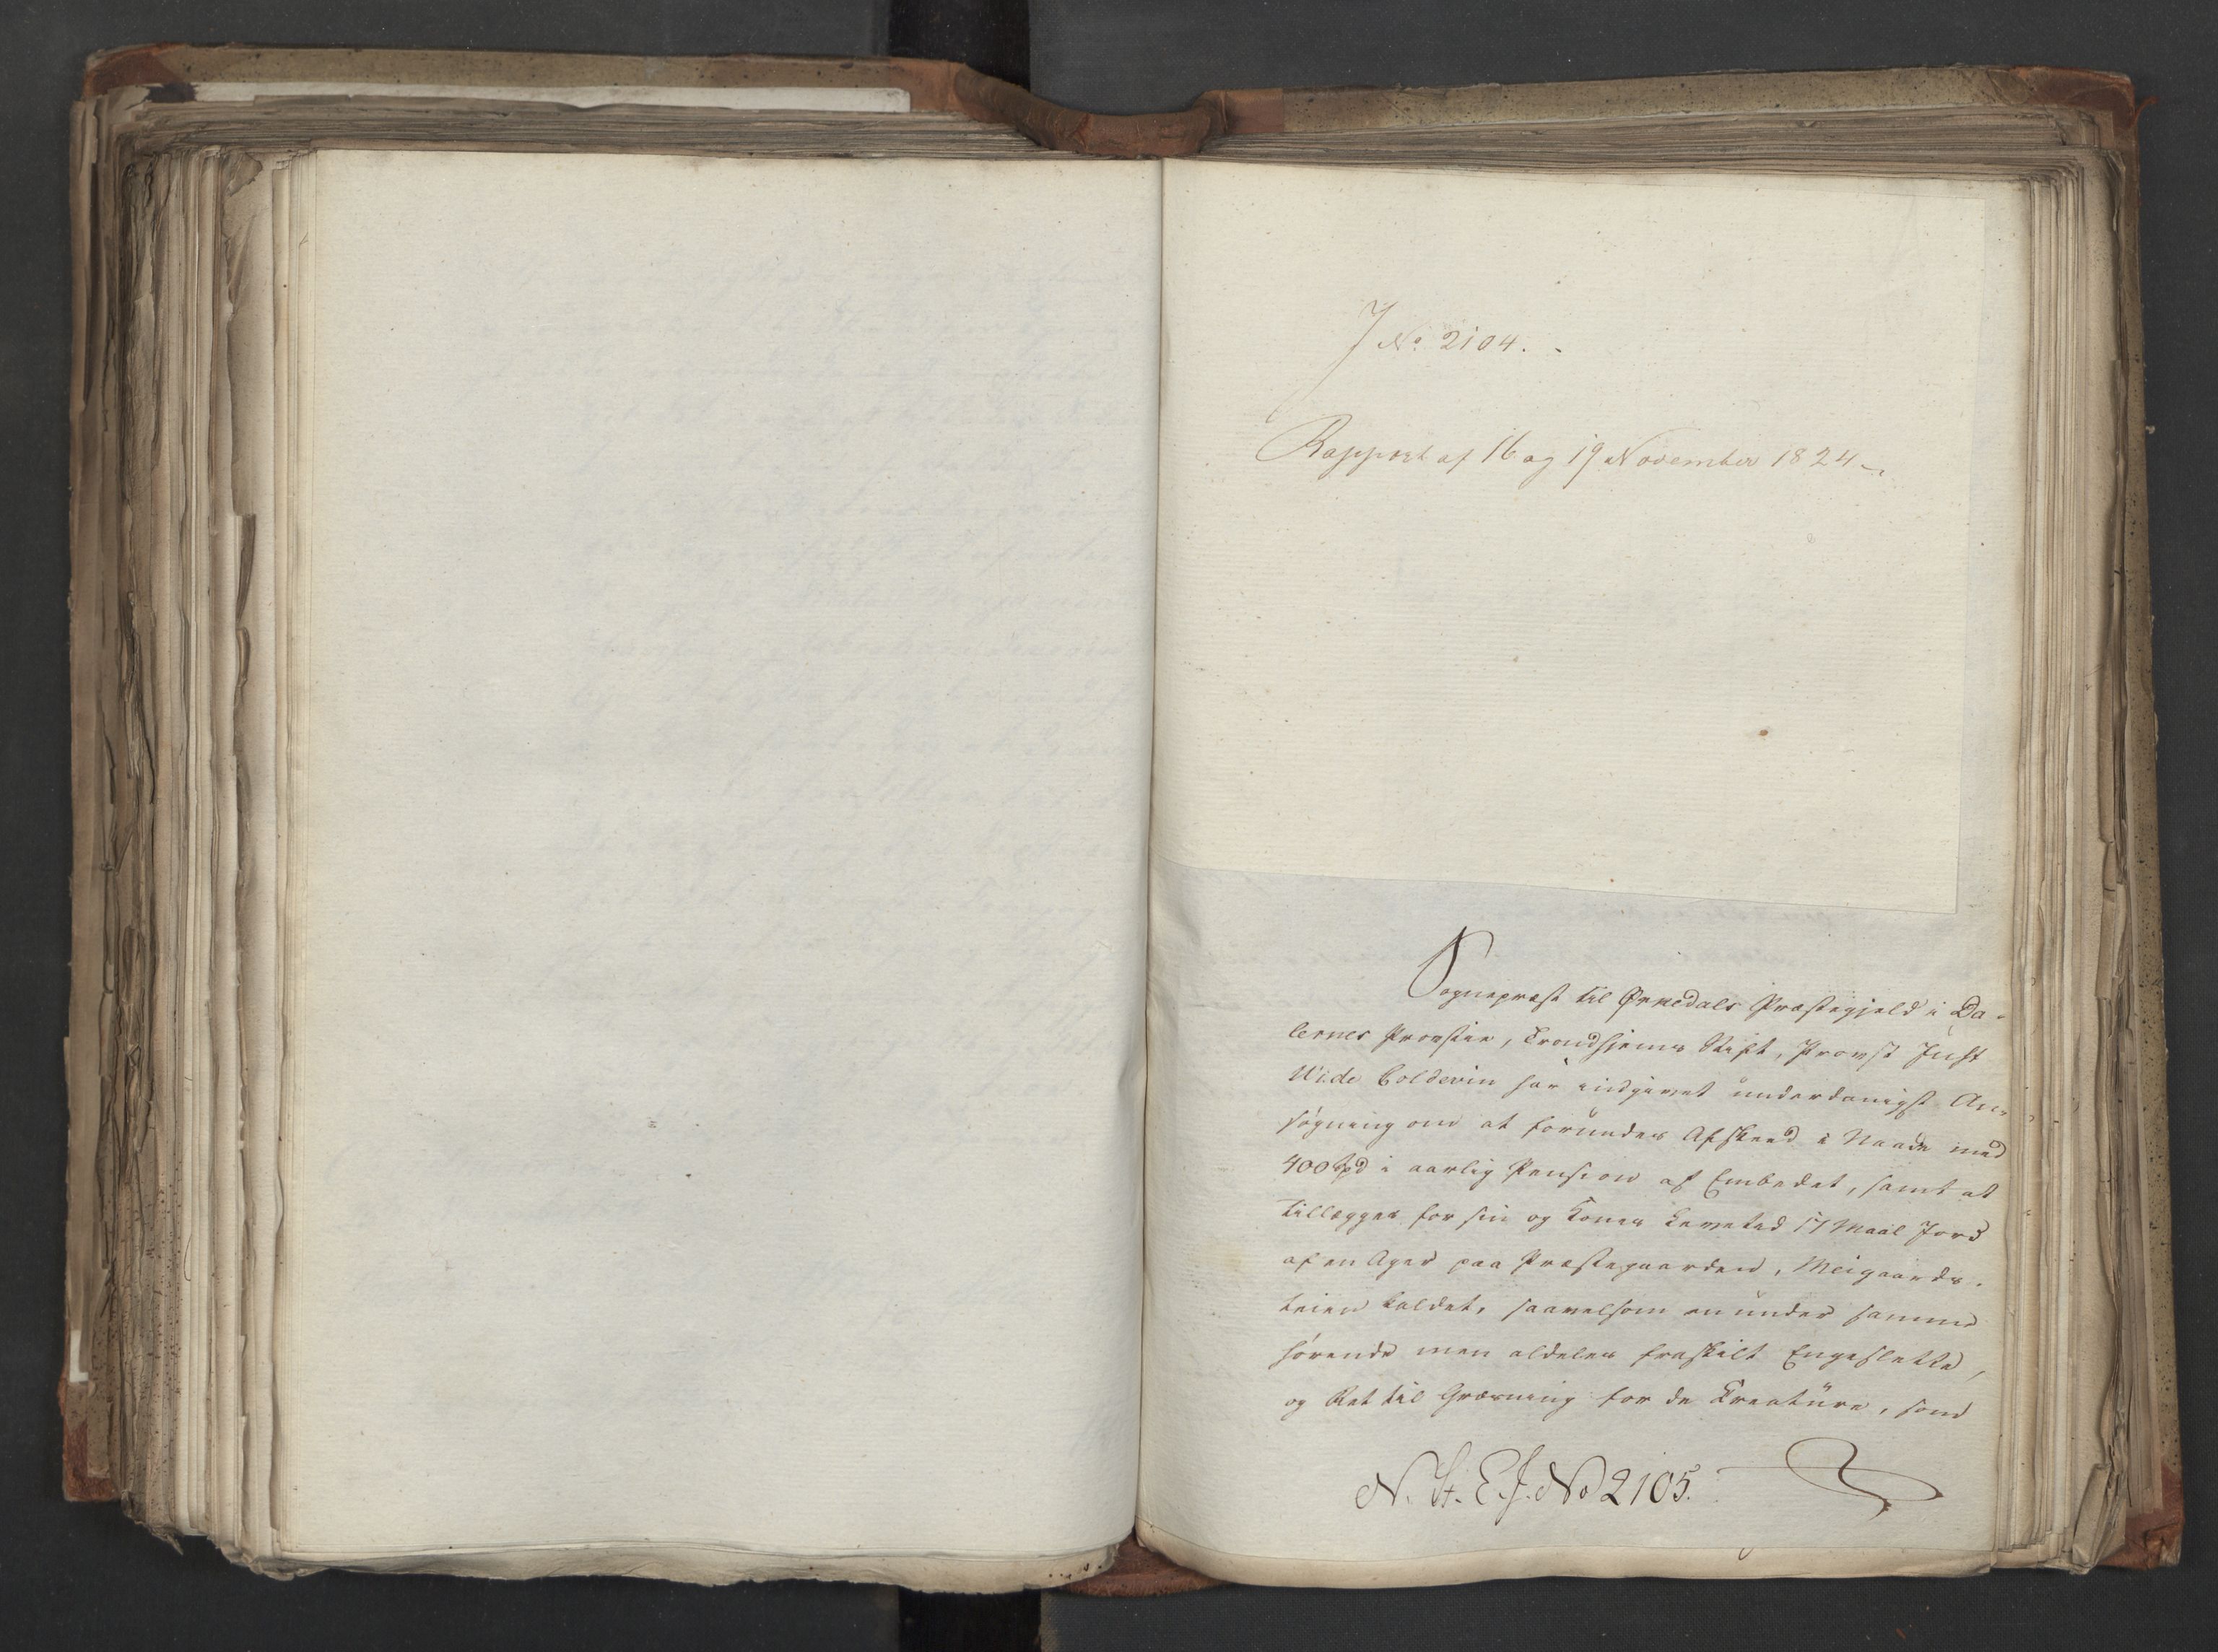 J No. 2104.
Rapport af 16 og 19 November 1824
Sognepræst til Ørkedals Præstegjeld i Da-
lernes Provstie, Trondhjems Stift, Provst Just
Wide Colderin har indgivet underdanigst An-
søgning om at forundes Afskeed i Naade med
400 Spd i aarlig Pension af Embedet, samt at
tillægges for sin og Kones Levetid 17 Maal Jord
af en Ager paa Præstegaarden, Meigaards-
teien kaldet, saavelsom en under samme
hørende men aldeles fraskilt Engeslette,
og Ret til Græsning for de Kreature, som
N. St. E. J. No 2105.